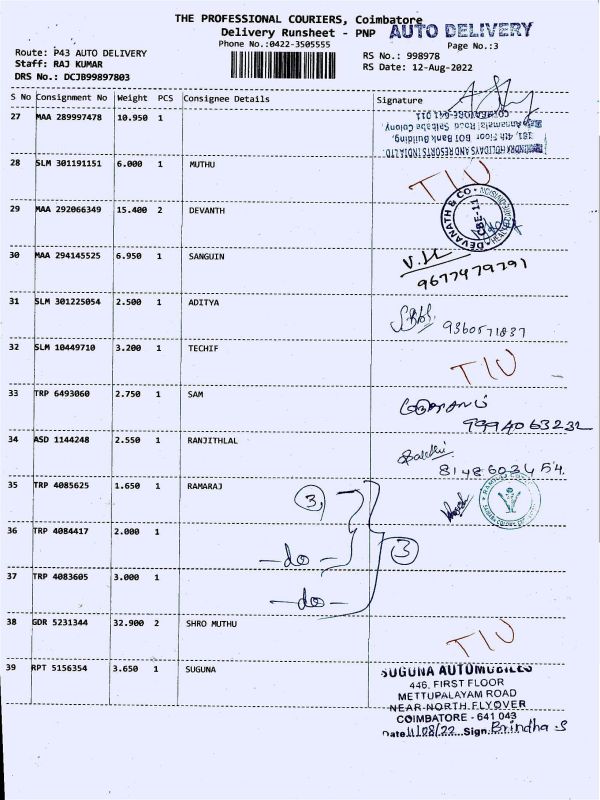 THE PROFESSIONAL COURIERS, Coimbatore
Delivery Runsheet - PNP AUTO DELIVERY
Phone No.:0422-3505555
Page No.:3
Route: P43 AUTO DELIVERY
RS No.: 998978
Staff: RAJ KUMAR
RS Date: 12-Aug-2022
DRS No.: DCJB99897803
S No Consignment No Weight PCS Consignee Details Signature
27 MAA 289997478 10.950 1
COIMBATORE-641 011
Annamalai Road, Saibaba Colony,
181, 4th Floor, BOI Bank Building,
MAHINDRA HOLIDAYS AND RESORTS INDIA LTD.
28 SLM 301191151 6.000 1 MUTHU
TIU
29 MAA 292066349 15.400 2 DEVANTH
DEVANATH & CO
CBE-11
30 MAA 294145525 6.950 1 SANGUIN
9677479791
31 SLM 301225054 2.500 1 ADITYA
9360571837
32 SLM 10449710 3.200 1 TECHIF
TIU
33 TRP 6493060 2.750 1 SAM
9994063232
34 ASD 1144248 2.550 1 RANJITHLAL
8148603454
35 TRP 4085625 1.650 1 RAMARAJ
3
36 TRP 4084417 2.000 1
-do-
3
37 TRP 4083605 3.000 1
-do-
38 GDR 5231344 32.900 2 SHRO MUTHU
TIU
39 RPT 5156354 3.650 1 SUGUNA
SUGUNA AUTOMOBILES
446, FIRST FLOOR
METTUPALAYAM ROAD
NEAR NORTH FLYOVER
COIMBATORE - 641 043
Date 11/08/22 Sign. Brindha S